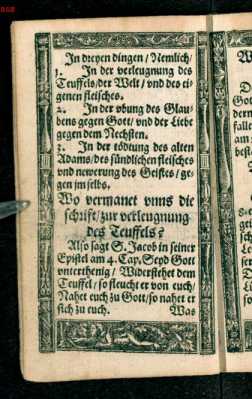 In dreyen dingen / Nemlich /
1. In der verleugnung des
Teuffels / der Welt / vnd des ei-
genen fleisches.
2. In der vbung des Glau-
bens gegen Gott / vnd der Liebe
gegen dem Nechsten.
3. In der tödtung des alten
Adams / des sündlichen fleisches
vnd newerung des Geistes / ge-
gen jm selbs.
Wo vermanet vnns die
schrifft / zur verleugnung
des Teuffels?
Also sagt S. Jacob in seiner
Epistel am 4. Cap. Seyd Gott
vnterthenig / Widerstehet dem
Teuffel / so fleucht er von euch /
Nahet euch zu Gott / so nahet er
sich zu euch. Was